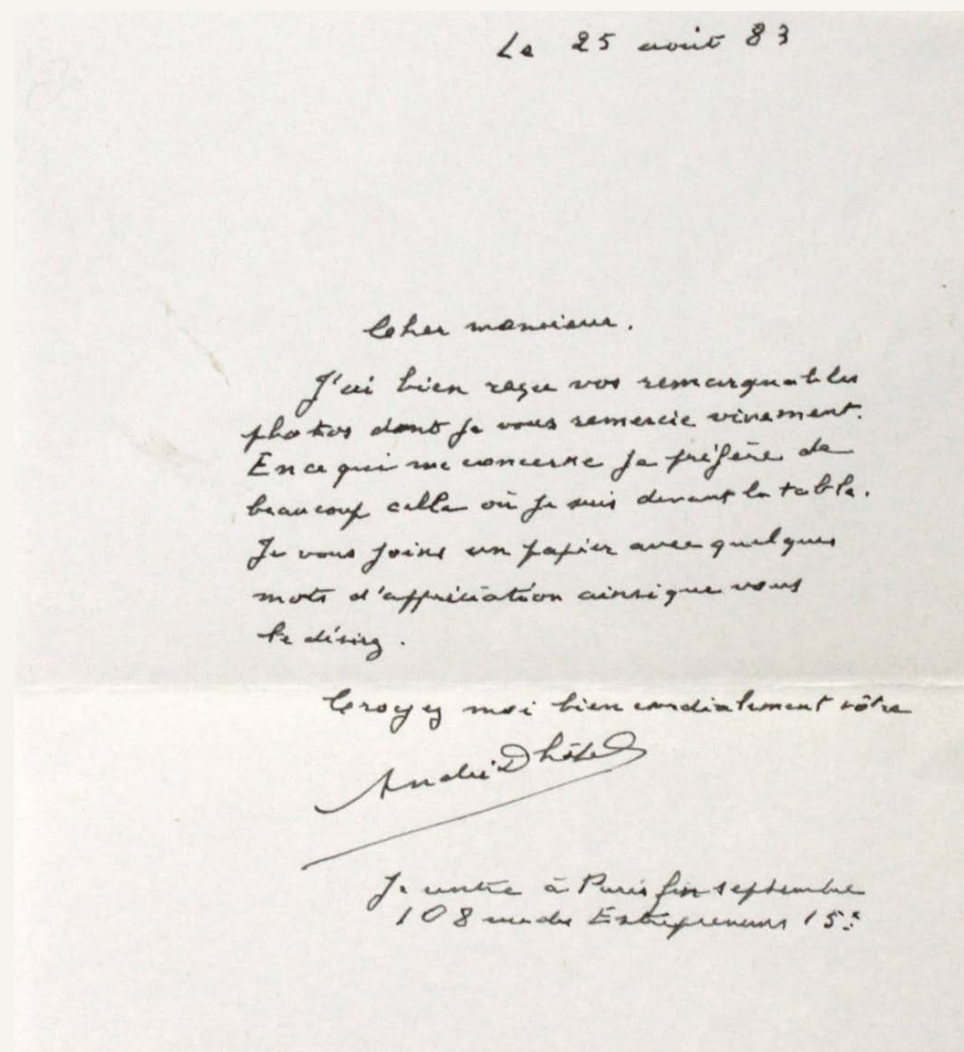 Le 25 août 83
Cher monsieur.
J'ai bien reçu vos remarquables
photos dont je vous remercie vivement.
En ce qui me concerne je préfère de
beaucoup celle où je suis devant la table.
Je vous joins un papier avec quelques
mots d'appréciation ainsi que vous
le désirez.
Croyez moi bien cordialement vôtre
André Dhôtel
Je rentre à Paris fin septembre
108 rue des Entrepreneurs 15e